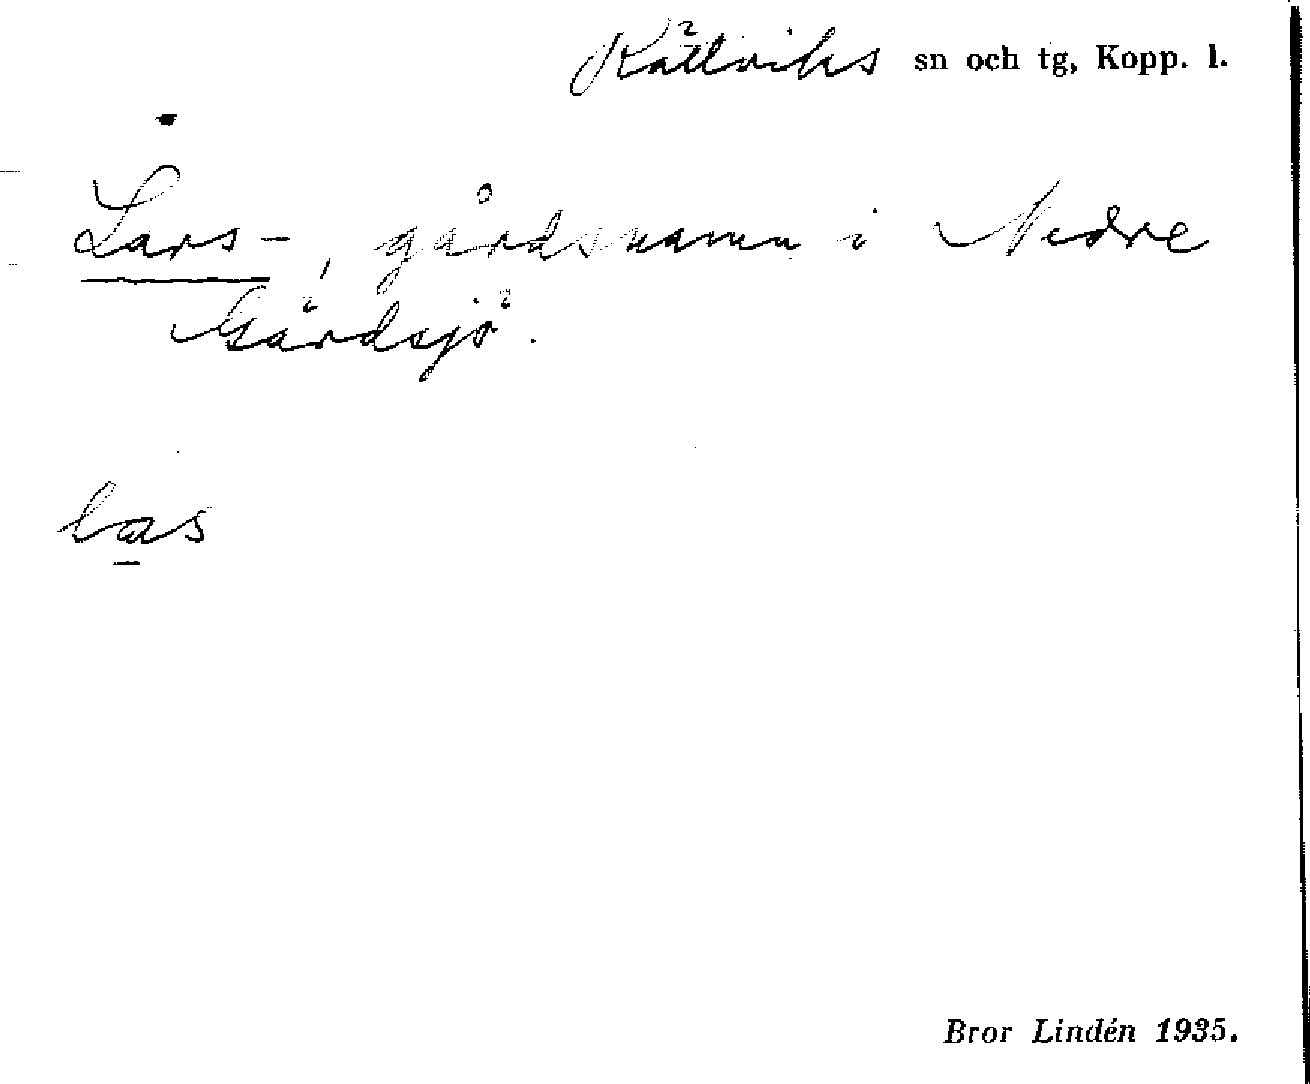 Rättviks sn och tg, Kopp. l.
Lars-, gårdsnamn i Nedre
Gärdsjö.
las
Bror Lindén 1935.